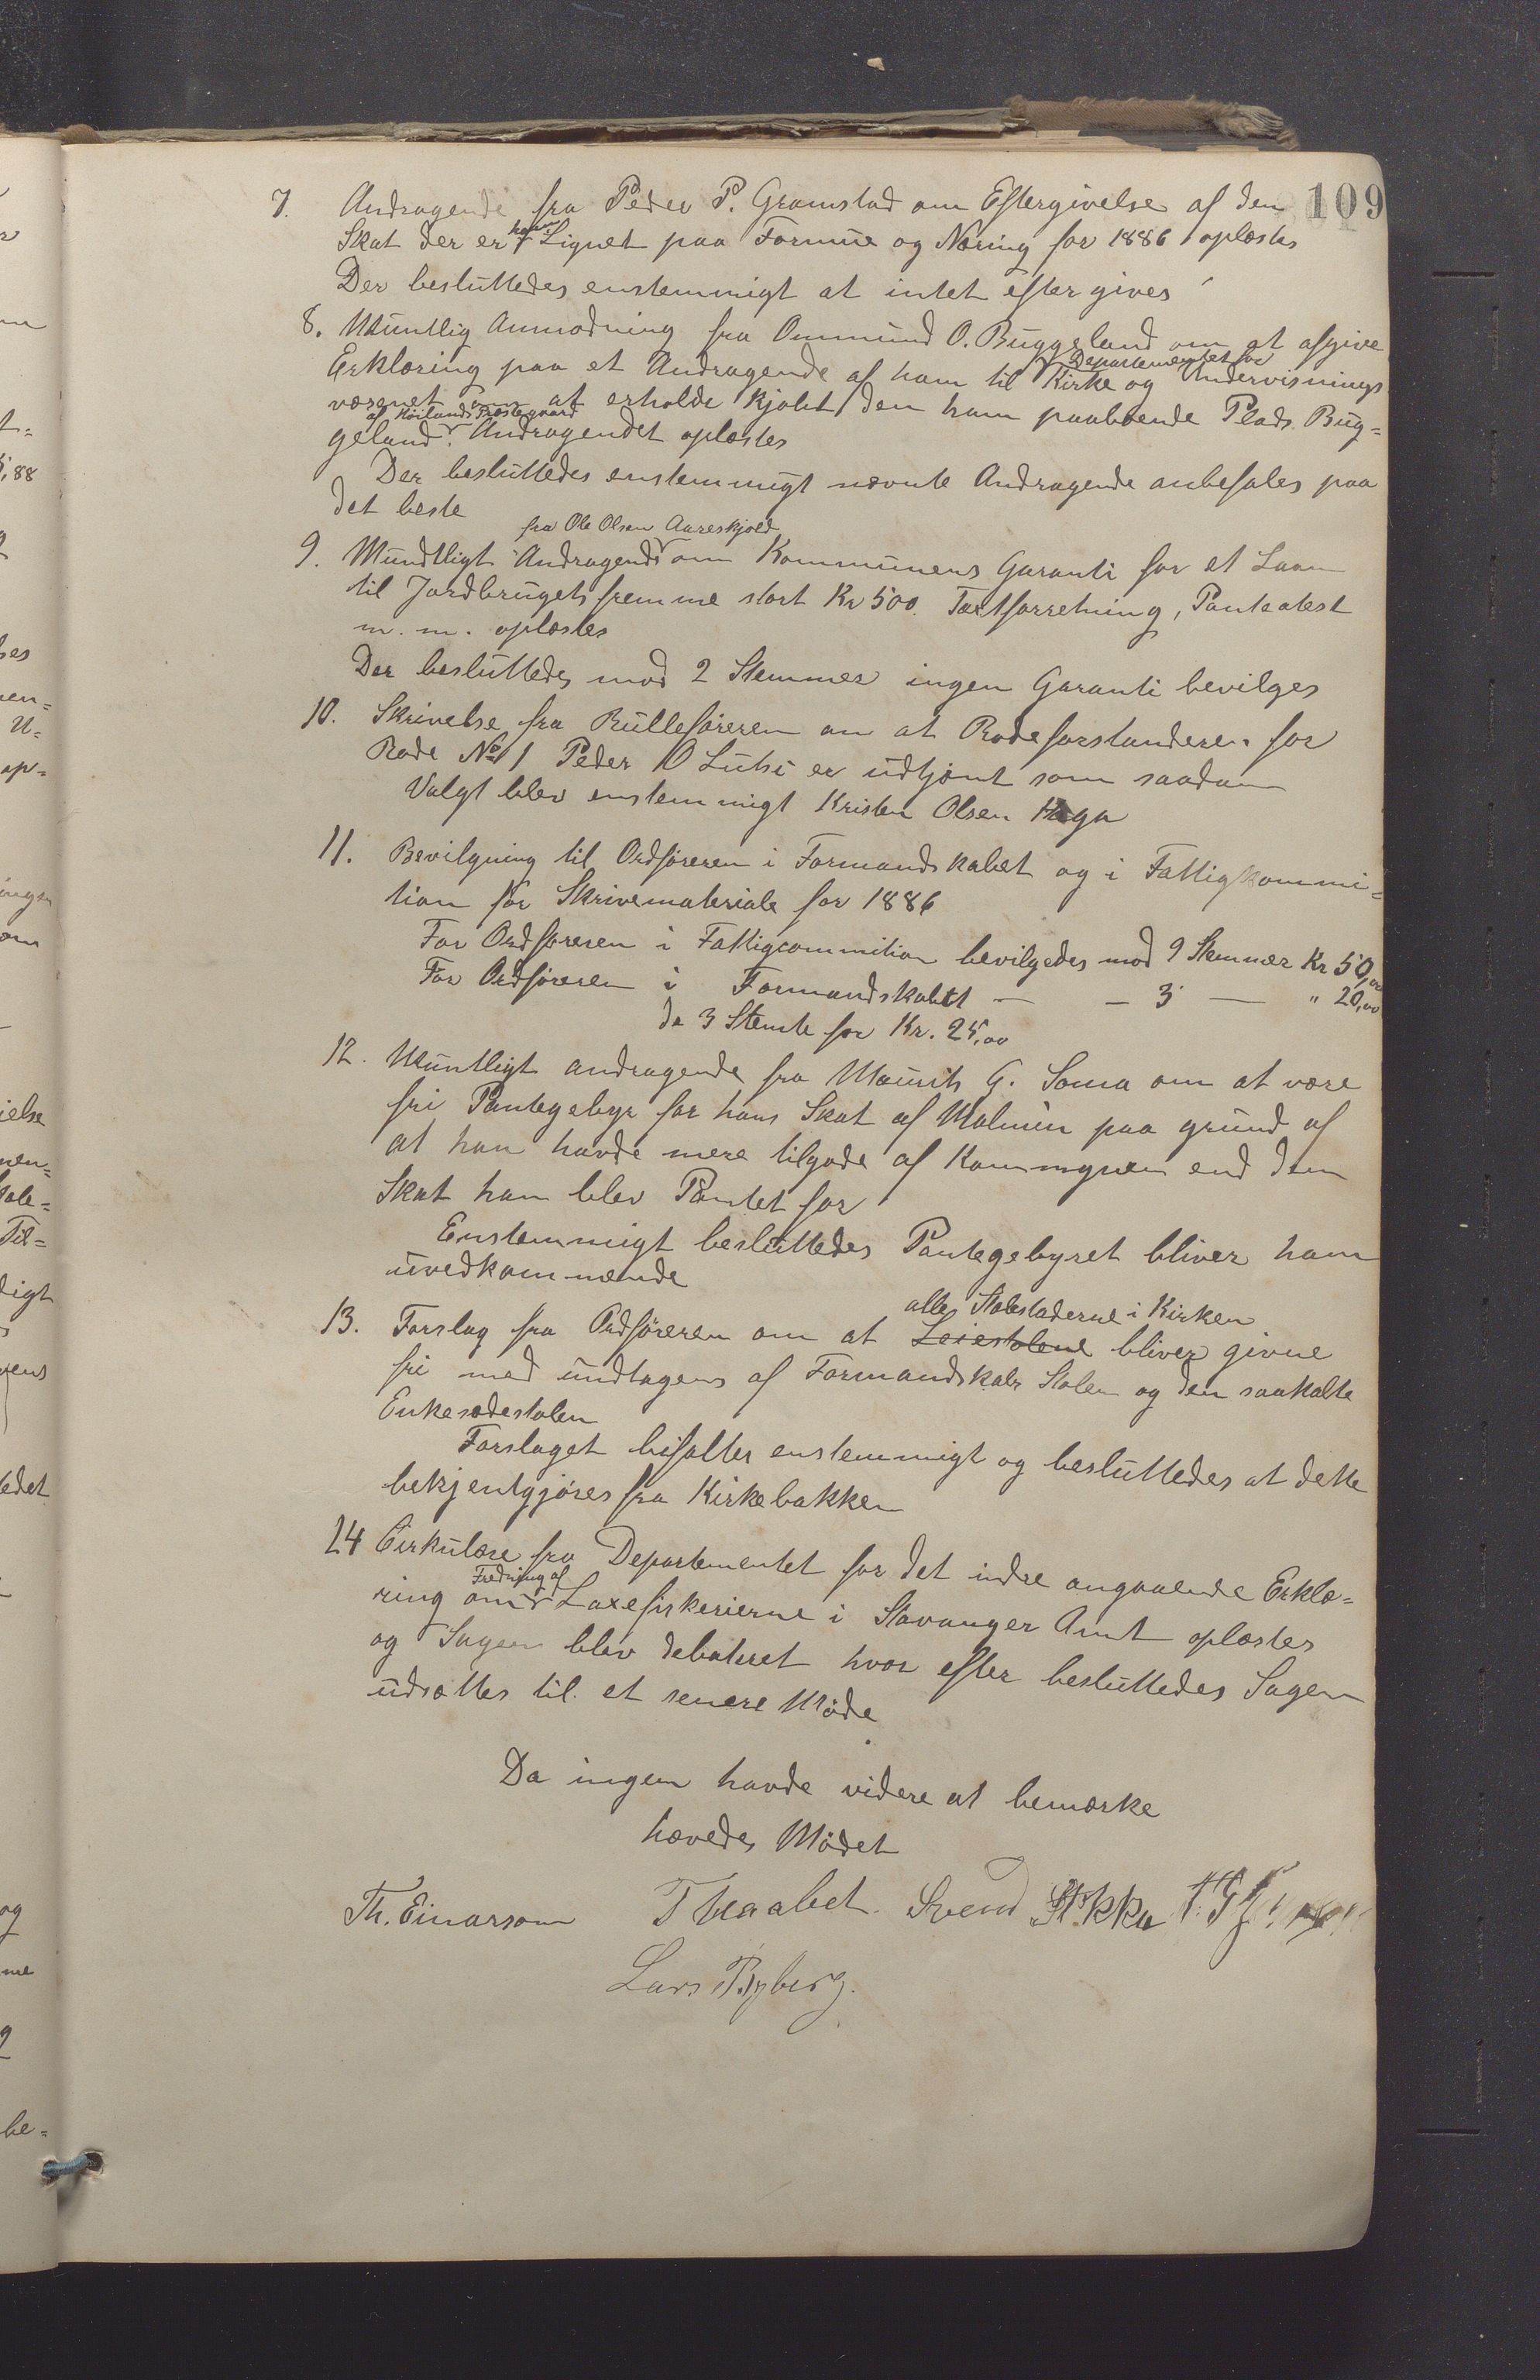 109
7. Andragende fra Peder P. Gramstad om Eftergivelse af den
Skat der er ham Lignet paa Formue og Næring for 1886 oplæstes
Der besluttedes enstemmigt at intet eftergives
8. Muntlig Anmodning fra Ommund O. Buggeland om at afgive
Erklæring paa et Andragende af ham til Departementet for Kirke og Undervisnings
væsenet om at erholde kjøbt den ham paaboende Plads Bug=
geland af Høilands Præstegaard. Andragendet oplæstes
Der besluttedes enstemmigt nævnte Andragende anbefales paa
det beste
9. Mundtligt Andragende fra Ole Olsen Aareskjold om Kommunens Garanti for et Laan
til Jordbrugets fremme stort Kr 500. Taxtforretning, Panteatest
m. m. oplæstes
Der besluttedes mod 2 Stemmer ingen Garanti bevilges
10. Skrivelse fra Rulleføreren om at Rodeforstanderen for
Rode No 1 Peder O Lutsi er udtjent som saadan
Valgt blev enstemmigt Kristen Olsen Haga
11. Bevilgning til Ordføreren i Formandskabet og i Fattigkommi=
tion for Skrivemateriale for 1886
For Ordføreren i Fattigcommition bevilgedes mod 9 Stemmer Kr 50,00
For Ordføreren i Formandskabet — — 3 — " 20,00
de 3 Stemte for Kr. 25,00
12. Muntligt andragende fra Maurits G. Soma om at være
fri Pantegebyr for hans Skat af Malmin paa grund af
at han havde mere tilgode af Kommynen end den
Skat han blev Pantet for
Enstemmigt besluttedes Pantegebyret bliver ham
uvedkommende
13. Forslag fra Ordføreren om at Leiestolene alle Stolestaderne i Kirken bliver givne
fri med undtagens af Formandskabs Stolen og den saakalte
Enkesædestolen
Forslaget bifaltes enstemmigt og besluttedes at dette
bekjentgjøres fra Kirkebakken
14 Cirkulære fra Departementet for det indre angaaende Erklæ=
ring om Fredning af Laxefiskerierne i Stavanger Amt oplæstes
og Sagen blev debateret hvor efter besluttedes Sagen
udsættes til et senere Møde
Da ingen havde videre at bemærke
hævedes Mødet
Th. Einarson T Skaabet Svend Stokka
Lars Byberg.